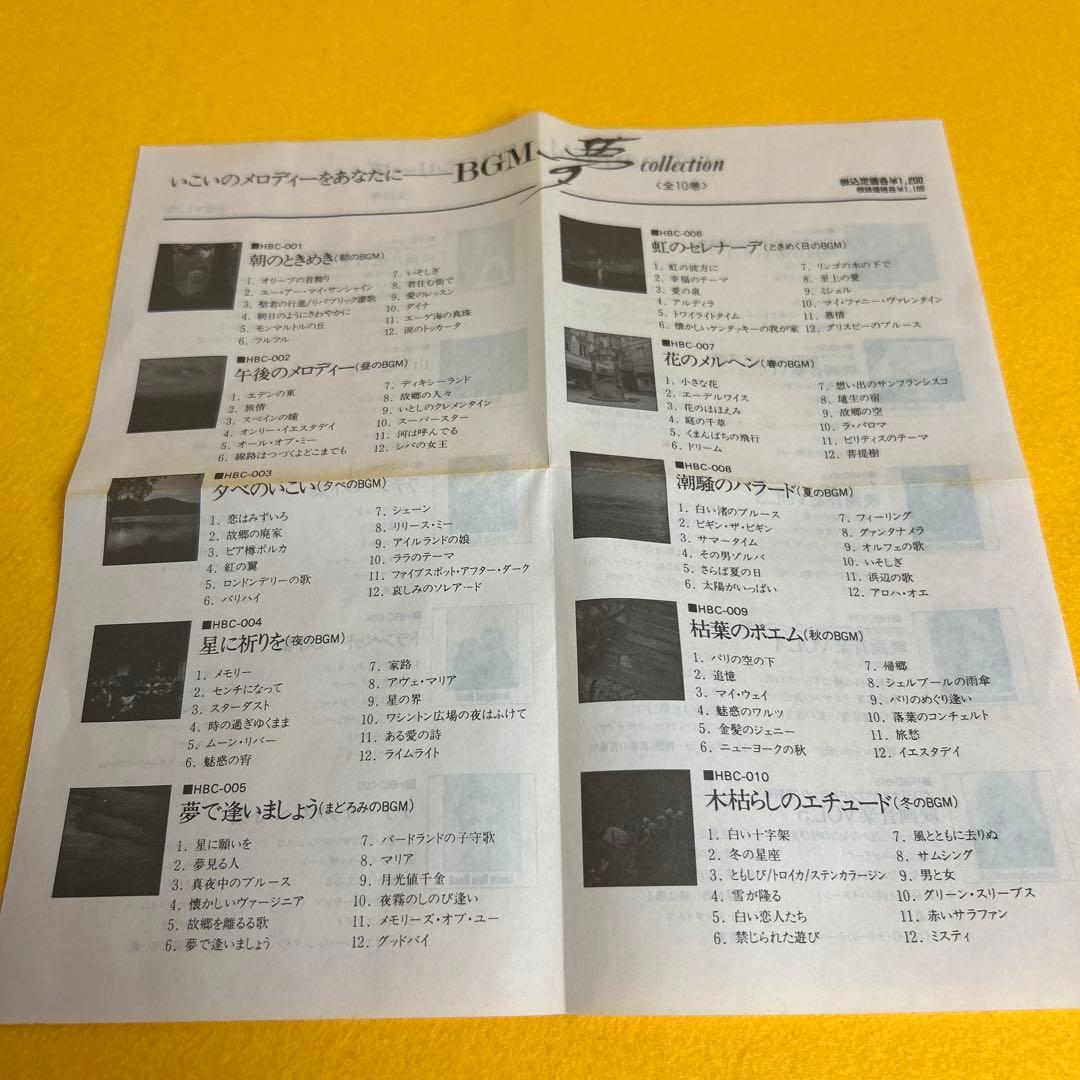 いこいのメロディーをあなたに──BGM 夢 collection
〈全10巻〉
税込定価各¥1,200
税抜価格各¥1,165
■HBC-001
朝のときめき(朝のBGM)
1. オリーブの首飾り
2. ユー・アー・マイ・サンシャイン
3. 聖者の行進/リパブリック讃歌
4. 朝日のようにさわやかに
5. モンマルトルの丘
6. フルフル
7. いそしぎ
8. 君住む街で
9. 愛のレッスン
10. ダイナ
11. エーゲ海の真珠
12. 涙のトッカータ
■HBC-002
午後のメロディー(昼のBGM)
1. エデンの東
2. 旅情
3. スペインの瞳
4. オンリー・イエスタデイ
5. オール・オブ・ミー
6. 線路はつづくよどこまでも
7. ディキシーランド
8. 故郷の人々
9. いとしのクレメンタイン
10. スーパースター
11. 河は呼んでる
12. シバの女王
■HBC-003
夕べのいこい(夕べのBGM)
1. 恋はみずいろ
2. 故郷の廃家
3. ビア樽ポルカ
4. 紅の翼
5. ロンドンデリーの歌
6. バリハイ
7. シェーン
8. リリース・ミー
9. アイルランドの娘
10. ララのテーマ
11. ファイブスポット・アフター・ダーク
12. 哀しみのソレアード
■HBC-004
星に祈りを(夜のBGM)
1. メモリー
2. センチになって
3. スターダスト
4. 時の過ぎゆくまま
5. ムーン・リバー
6. 魅惑の宵
7. 家路
8. アヴェ・マリア
9. 星の界
10. ワシントン広場の夜はふけて
11. ある愛の詩
12. ライムライト
■HBC-005
夢で逢いましょう(まどろみのBGM)
1. 星に願いを
2. 夢見る人
3. 真夜中のブルース
4. 懐かしいヴァージニア
5. 故郷を離るる歌
6. 夢で逢いましょう
7. バードランドの子守歌
8. マリア
9. 月光値千金
10. 夜霧のしのび逢い
11. メモリーズ・オブ・ユー
12. グッドバイ
■HBC-006
虹のセレナーデ(ときめく日のBGM)
1. 虹の彼方に
2. 幸福のテーマ
3. 愛の泉
4. アルディラ
5. トワイライトタイム
6. 懐かしいケンタッキーの我が家
7. リンゴの木の下で
8. 至上の愛
9. ミシェル
10. マイ・ファニー・ヴァレンタイン
11. 慕情
12. グリスビーのブルース
■HBC-007
花のメルヘン(春のBGM)
1. 小さな花
2. エーデルワイス
3. 花のほほえみ
4. 庭の千草
5. くまんばちの飛行
6. ドリーム
7. 想い出のサンフランシスコ
8. 埴生の宿
9. 故郷の空
10. ラ・パロマ
11. ビリティスのテーマ
12. 菩提樹
■HBC-008
潮騒のバラード(夏のBGM)
1. 白い渚のブルース
2. ビギン・ザ・ビギン
3. サマータイム
4. その男ゾルバ
5. さらば夏の日
6. 太陽がいっぱい
7. フィーリング
8. グァンタナメラ
9. オルフェの歌
10. いそしぎ
11. 浜辺の歌
12. アロハ・オエ
■HBC-009
枯葉のポエム(秋のBGM)
1. パリの空の下
2. 追憶
3. マイ・ウェイ
4. 魅惑のワルツ
5. 金髪のジェニー
6. ニューヨークの秋
7. 帰郷
8. シェルブールの雨傘
9. パリのめぐり逢い
10. 落葉のコンチェルト
11. 旅愁
12. イエスタデイ
■HBC-010
木枯らしのエチュード(冬のBGM)
1. 白い十字架
2. 冬の星座
3. ともしび/トロイカ/ステンカラージン
4. 雪が降る
5. 白い恋人たち
6. 禁じられた遊び
7. 風とともに去りぬ
8. サムシング
9. 男と女
10. グリーン・スリーブス
11. 赤いサラファン
12. ミスティ